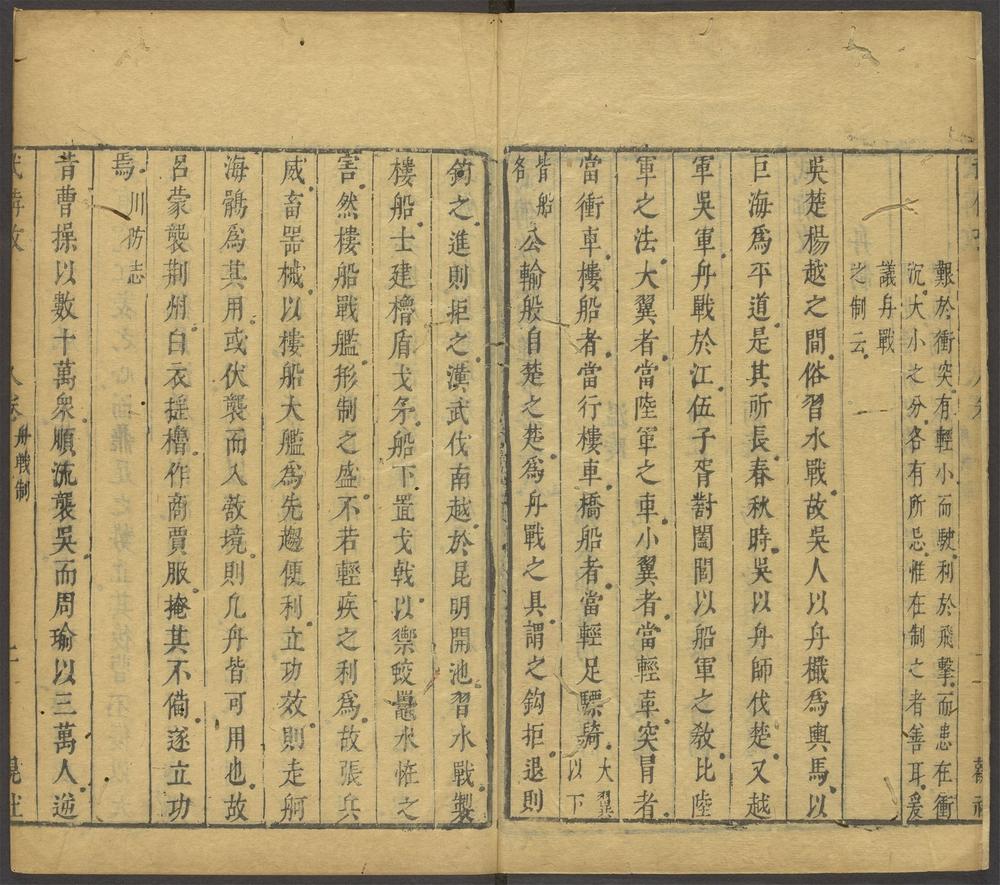 艱於衝突有輕小而駛利於飛擊而患在衝
沉大小之分各有所忌惟在制之者善耳爰
議舟戰
之制云
吳楚楊越之間俗習水戰故吳人以舟檝爲輿馬以
巨海爲平道是其所長春秋時吳以舟師伐楚又越
軍吳軍舟戰於江伍子胥對闔閭以船軍之敎比陸
軍之法大翼者當陸軍之車小翼者當輕車突冒者
當衝車樓船者當行樓車橋船者當輕足驃騎大翼以下
皆船各公輸般自楚之楚爲舟戰之具謂之鈎拒退則
鈎之進則拒之漢武伐南越於昆明開池習水戰製
樓船士建櫓盾戈矛船下置戈戟以禦蛟鼉水恠之
害然樓船戰艦形制之盛不若輕疾之利爲故張兵
威畜器械以樓船大艦爲先趨便利立功效則走舸
海鶻爲其用或伏襲而入敵境則凢舟皆可用也故
呂蒙襲荆州白衣揺櫓作商賈服掩其不備遂立功
焉川防志
昔曹操以數十萬衆順流襲吳而周瑜以三萬人逆
舟戰制